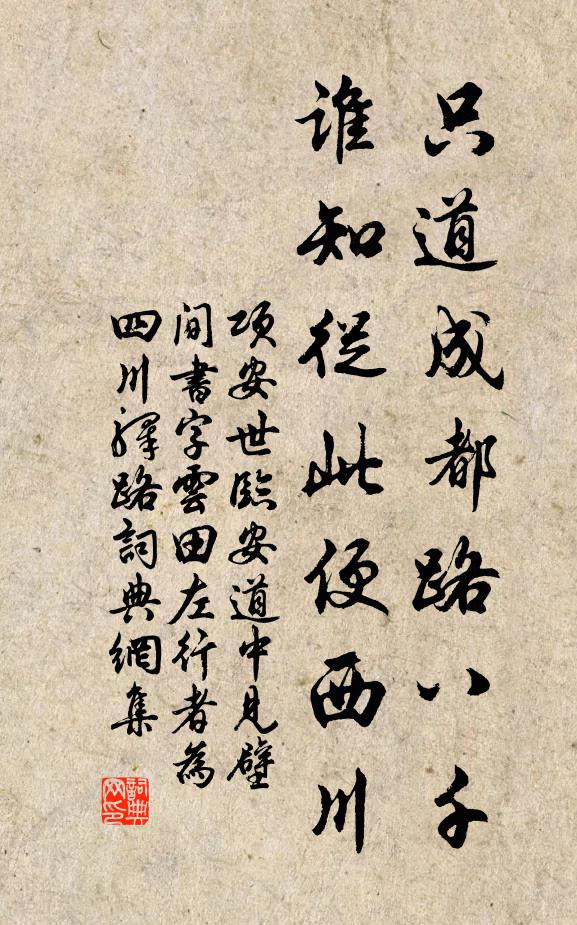 只道成都路八千
誰知從此便西川
項安世臨安道中見壁
間書字雲田左行者為
四川驛路詞典網集
詞典網印